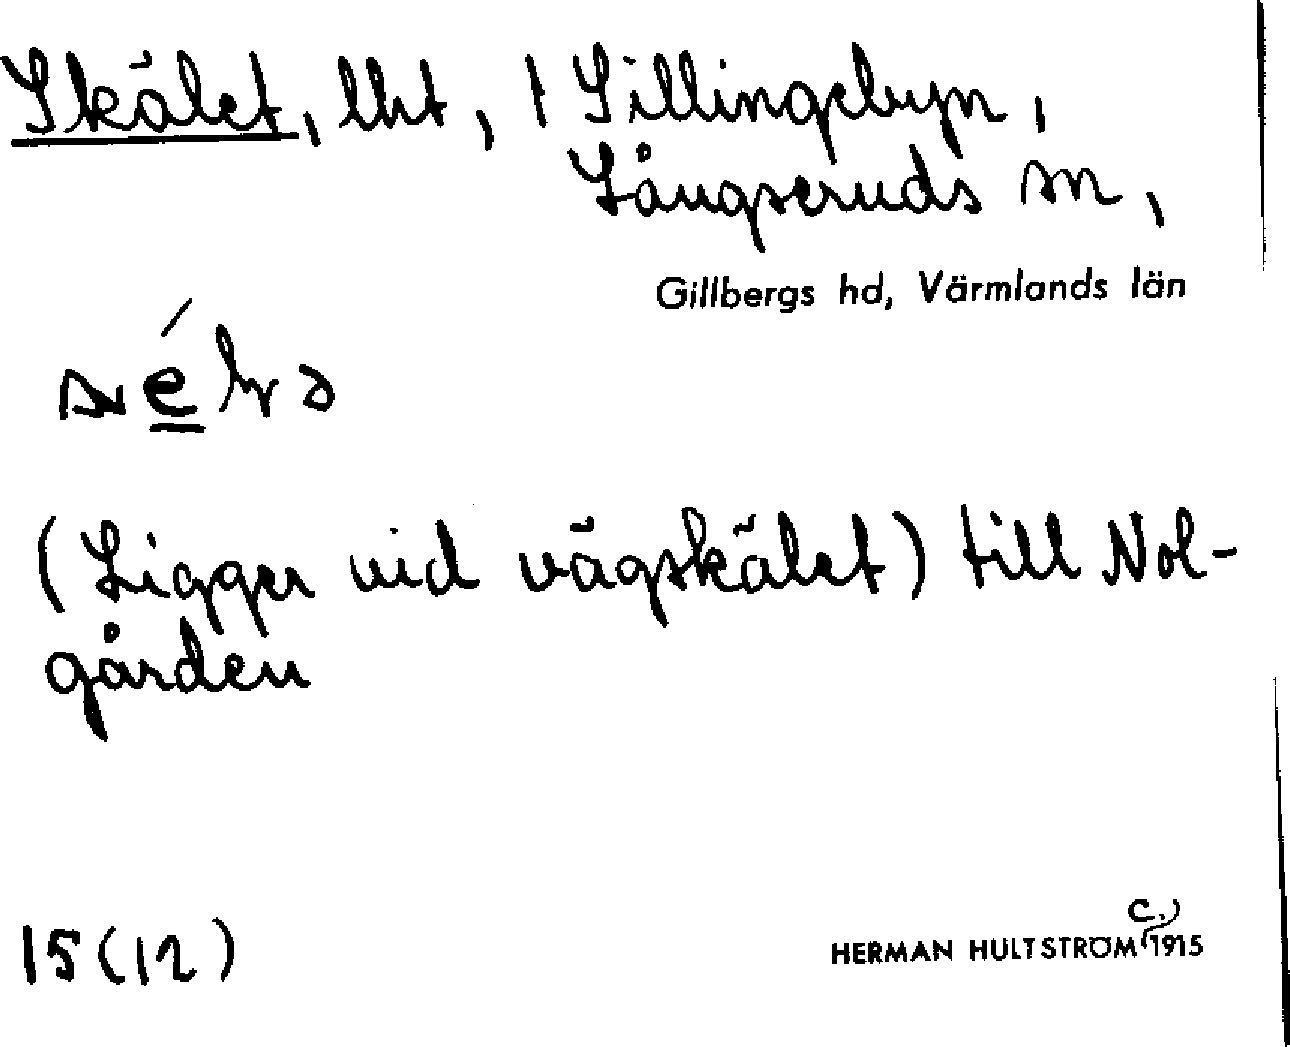 Skälet, lht, 1 Sillingebyn,
Långseruds sn,
Gillbergs hd, Värmlands län
(Ligger vid vägskälet) till Nol-
gården
15 (12)
HERMAN HULTSTRÖM c. 1915